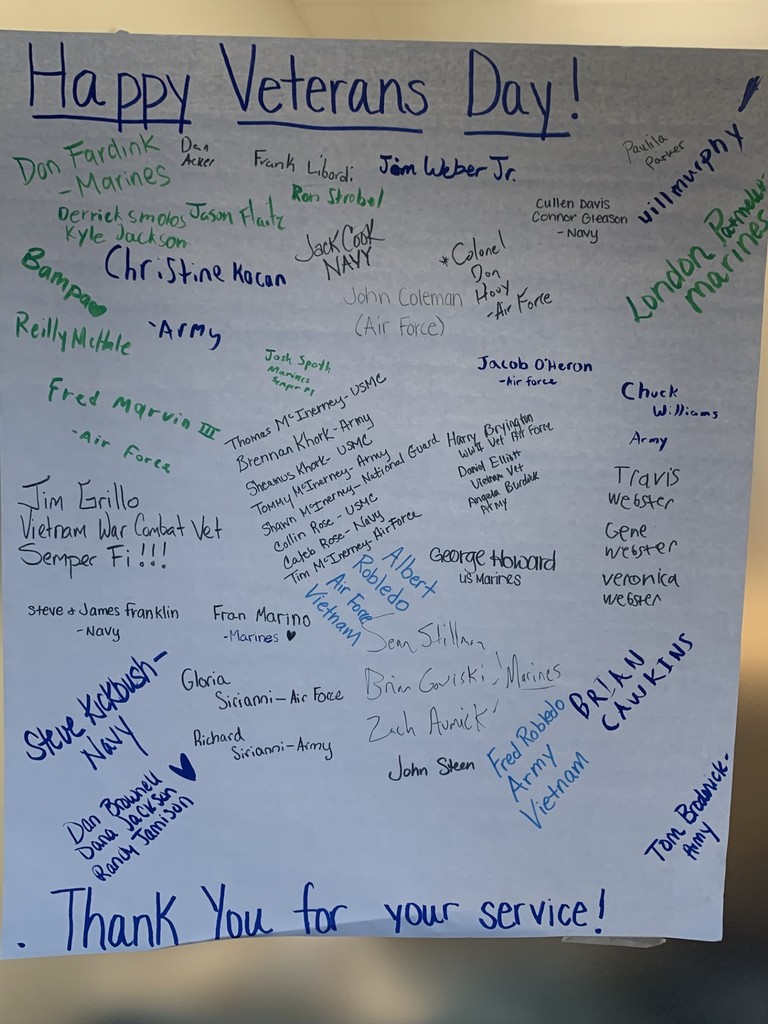 Happy Veterans Day!
Don Fardink
- Marines
Dan
Acker
Frank Libordi
Jim Weber Jr.
Ron Strobel
Paulila
Parker
Will Murphy
Derrick Smolos
Jason Flaitz
Kyle Jackson
Cullen Davis
Connor Gleason
- Navy
London
marines
Bampa
Christine Kocan
- Army
Jack Cook
NAVY
* Colonel
Don
Hovy
- Air Force
John Coleman
(Air Force)
Reilly McHale
Josh Spoth
Marines
Semper Fi
Jacob O'Heron
- Air force
Fred Marvin III
- Air Force
Chuck
Williams
Army
Thomas McInerney - USMC
Brennan Khork - Army
Sheamus Khork - USMC
Tommy McInerney - Army
Shawn McInerney - National Guard
Collin Rose - USMC
Caleb Rose - Navy
Tim McInerney - Air Force
Harry Bryington
WWII Vet Air Force
Daniel Elliott
Vietnam Vet
Angela Burdick
Army
Travis
Webster
Gene
Webster
Veronica
Webster
Jim Grillo
Vietnam War Combat Vet
Semper Fi!!!
Albert
Robledo
Air Force
Vietnam
George Howard
US Marines
Steve + James Franklin
- Navy
Fran Marino
- Marines
Sean Stillman
Brian - Marines
Zach
Steve Kickbush -
Navy
Gloria
Sirianni - Air Force
Richard
Sirianni - Army
BRIAN
CAWKINS
John Steen
Fred Robledo
Army
Vietnam
Dan Brownell
Dana Jackson
Randy Jamison
Tom Broderick -
Army
. Thank You for your service!